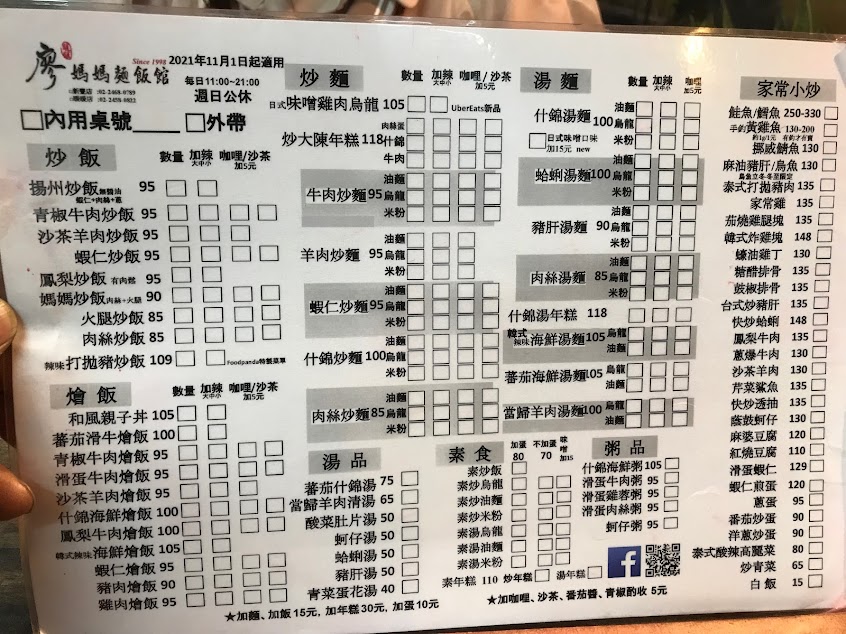 廖媽媽麵飯館
Since 1998
2021年11月1日起適用
每日11:00~21:00
週日公休
內用桌號 外帶
炒飯 數量 加辣 大中小 咖哩/沙茶 加5元
揚州炒飯 無醬油 蝦仁+肉絲+蔥 95
青椒牛肉炒飯 95
沙茶羊肉炒飯 95
蝦仁炒飯 95
鳳梨炒飯 有肉鬆 95
媽媽炒飯 肉絲+火腿 90
火腿炒飯 85
肉絲炒飯 85
辣味打拋豬炒飯 109 Foodpanda特製菜單
燴飯 數量 加辣 大中小 咖哩/沙茶 加5元
和風親子丼 105
蕃茄滑牛燴飯 100
青椒牛肉燴飯 95
滑蛋牛肉燴飯 95
沙茶羊肉燴飯 95
什錦海鮮燴飯 100
鳳梨牛肉燴飯 100
韓式辣味海鮮燴飯 105
蝦仁燴飯 95
豬肉燴飯 90
雞肉燴飯 95
炒麵 數量 加辣 大中小 咖哩/沙茶 加5元
日式味噌雞肉烏龍 105 UberEats新品
炒大陳年糕 118 肉絲蛋 什錦 牛肉
牛肉炒麵 95 油麵 烏龍 米粉
羊肉炒麵 95 油麵 烏龍 米粉
蝦仁炒麵 95 油麵 烏龍 米粉
什錦炒麵 100 油麵 烏龍 米粉
肉絲炒麵 85 油麵 烏龍 米粉
湯品
蕃茄什錦湯 75
當歸羊肉清湯 65
酸菜肚片湯 50
蚵仔湯 50
蛤蜊湯 50
豬肝湯 50
青菜蛋花湯 40
湯麵 數量 加辣 大中小 咖哩 加5元
什錦湯麵 100 油麵 烏龍 米粉
日式味噌口味 加15元 new
蛤蜊湯麵 100 油麵 烏龍 米粉
豬肝湯麵 90 油麵 烏龍 米粉
肉絲湯麵 85 油麵 烏龍 米粉
什錦湯年糕 118
韓式辣味海鮮湯麵 105 烏龍 油麵
蕃茄海鮮湯麵 105 烏龍 油麵
當歸羊肉湯麵 100 烏龍 油麵
素食 加蛋 80 不加蛋 70 味噌 加15
素炒飯
素炒烏龍
素炒油麵
素炒米粉
素湯烏龍
素湯油麵
素湯米粉
素年糕 110 炒年糕 湯年糕
粥品
什錦海鮮粥 105
滑蛋牛肉粥 95
滑蛋雞蓉粥 95
滑蛋肉絲粥 95
蚵仔粥 95
家常小炒
鮭魚/鱈魚 250-330
手釣黃雞魚 130-200
挪威鯖魚 130
麻油豬肝/烏魚 130
泰式打拋豬肉 135
家常雞 135
茄燒雞腿塊 135
韓式炸雞塊 148
蠔油雞丁 130
糖醋排骨 135
豉椒排骨 135
台式炒豬肝 135
快炒蛤蜊 148
鳳梨牛肉 135
蔥爆牛肉 130
沙茶羊肉 130
芹菜鯊魚 135
快炒透抽 135
蔭鼓蚵仔 130
麻婆豆腐 120
紅燒豆腐 110
滑蛋蝦仁 129
蝦仁煎蛋 120
蔥蛋 95
番茄炒蛋 90
洋蔥炒蛋 90
泰式酸辣高麗菜 80
炒青菜 65
白飯 15
★加麵、加飯 15元, 加年糕 30元, 加蛋 10元
★加咖哩、沙茶、番茄醬、青椒酌收 5元